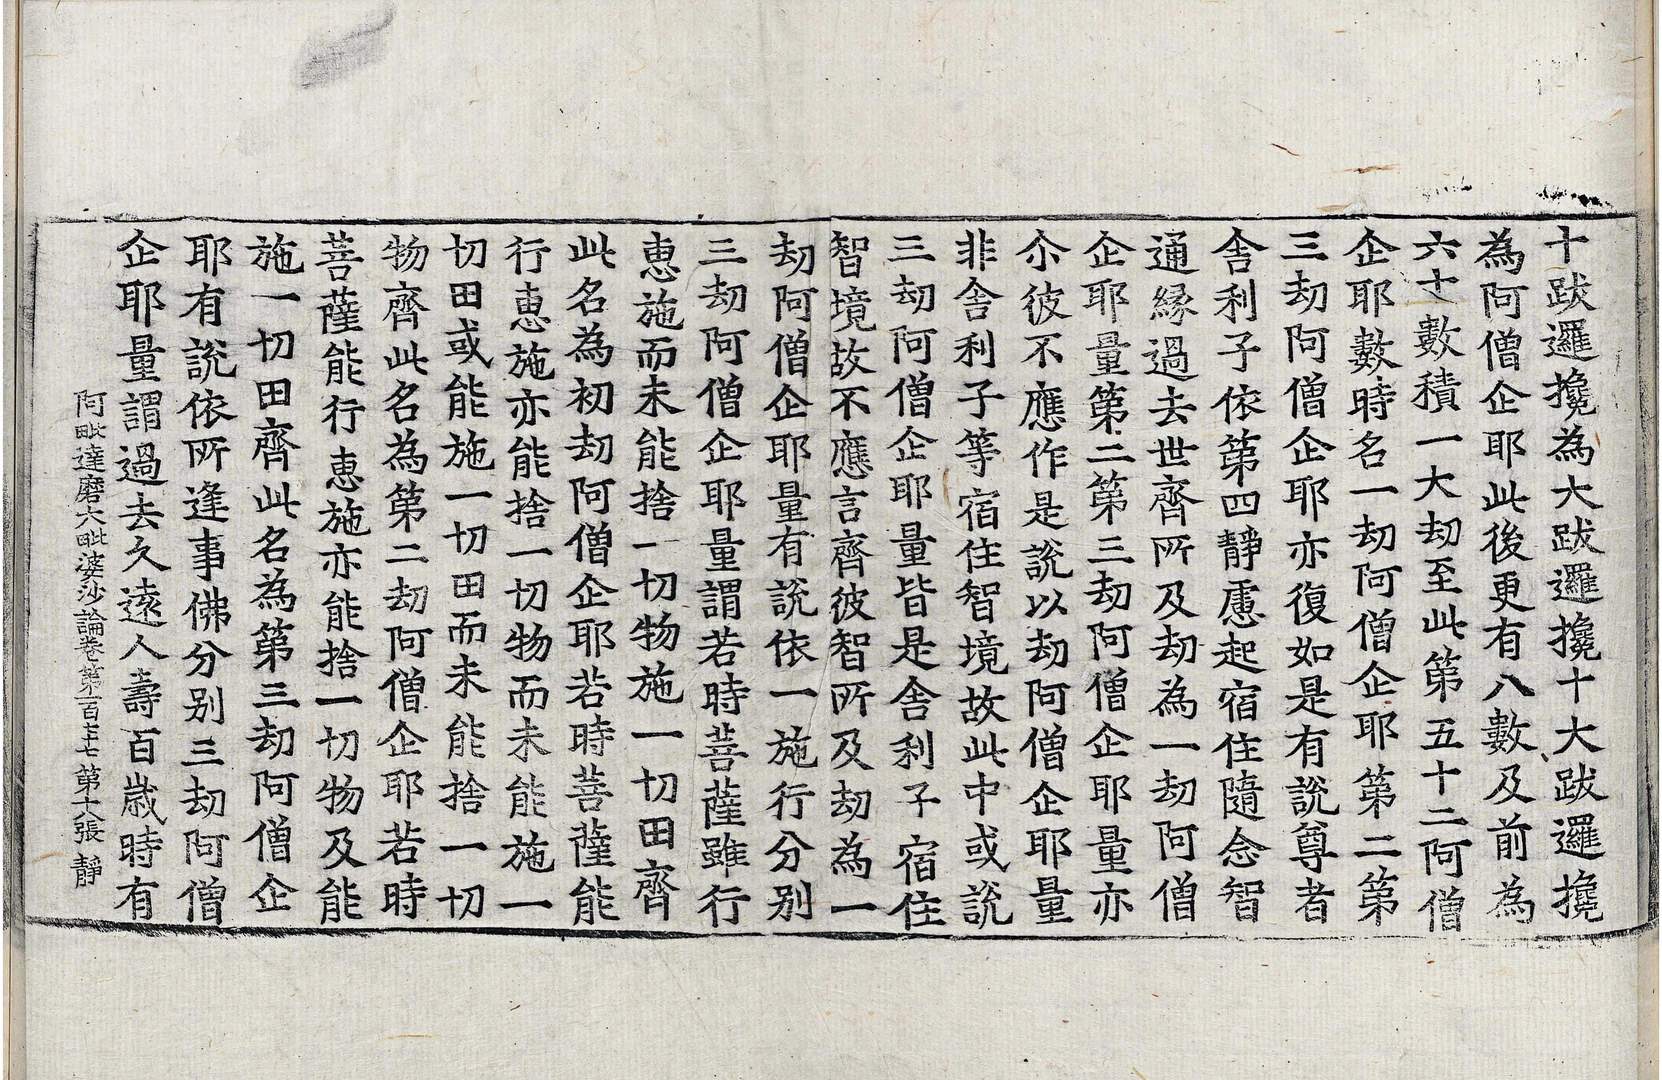 十跋邏攙為大跋邏攙十大跋邏攙
為阿僧企耶此後更有八數及前為
六十數積一大劫至此第五十二阿僧
企耶數時名一劫阿僧企耶第二第
三劫阿僧企耶亦復如是有說尊者
舍利子依第四靜慮起宿住隨念智
通緣過去世齊所及劫為一劫阿僧
企耶量第二第三劫阿僧企耶量亦
尒彼不應作是說以劫阿僧企耶量
非舍利子等宿住智境故此中或說
三劫阿僧企耶量皆是舍利子宿住
智境故不應言齊彼智所及劫為一
劫阿僧企耶量有說依一施行分別
三劫阿僧企耶量謂若時菩薩雖行
惠施而未能捨一切物施一切田齊
此名為初劫阿僧企耶若時菩薩能
行惠施亦能捨一切物而未能施一
切田或能施一切田而未能捨一切
物齊此名為第二劫阿僧企耶若時
菩薩能行惠施亦能捨一切物及能
施一切田齊此名為第三劫阿僧企
耶有說依所逢事佛分別三劫阿僧
企耶量謂過去久遠人壽百歲時有
阿毗達磨大毗婆沙論卷第一百七十七 第十八張 靜